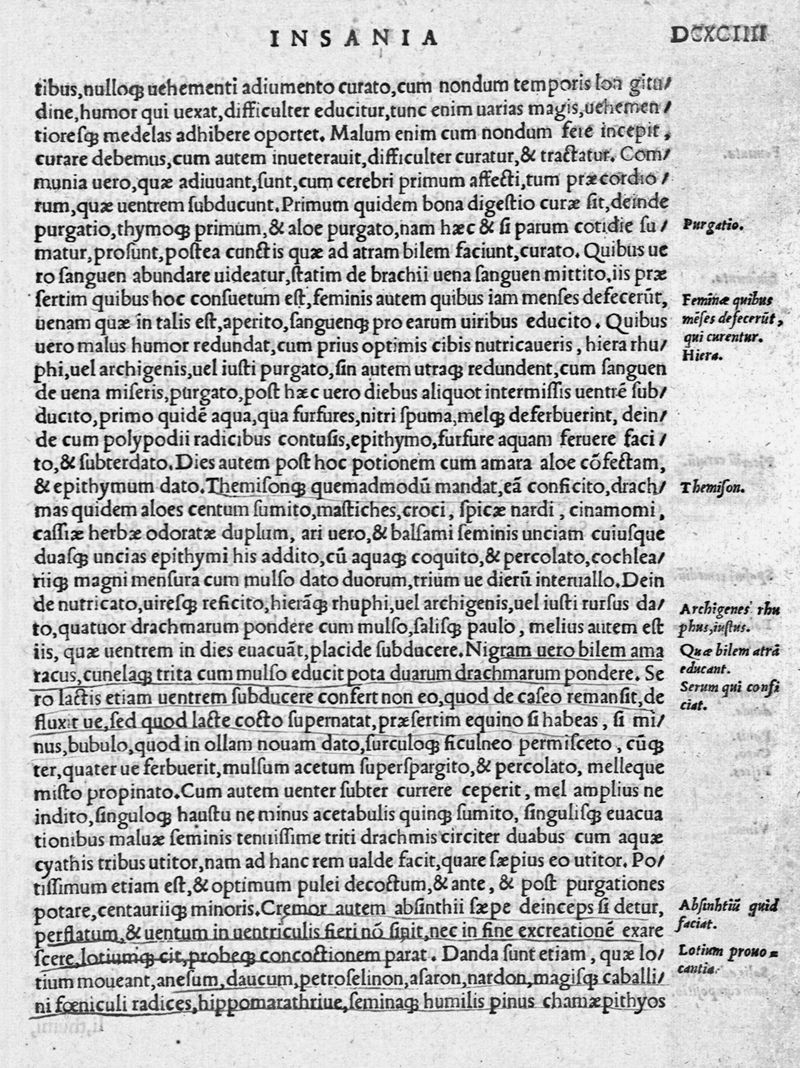 INSANIA
DCXCIIII
tibus,nulloq́; uehementi adiumento curato,cum nondum temporis lon gitu/
dine,humor qui uexat,difficulter educitur,tunc enim uarias magis,uehemen/
tioresq́; medelas adhibere oportet. Malum enim cum nondum fere incepit,
curare debemus,cum autem inueterauit,difficulter curatur,& tractatur. Com/
munia uero,quæ adiuuant,sunt,cum cerebri primum affecti,tum præcordio/
rum,quæ uentrem subducunt.Primum quidem bona digestio curæ sit,deinde
purgatio,thymoq́; primum,& aloe purgato,nam hæc & si parum cotidie su/
Purgatio.
matur,prosunt,postea cunctis quæ ad atram bilem faciunt,curato. Quibus ue
ro sanguen abundare uideatur,statim de brachii uena sanguen mittito,iis præ
sertim quibus hoc consuetum est,feminis autem quibus iam menses defecerūt,
Feminæ quibus
uenam quæ in talis est,aperito,sanguenq́; pro earum uiribus educito. Quibus
mēses defecerūt,
qui curentur.
uero malus humor redundat,cum prius optimis cibis nutricaueris, hiera rhu/
Hiera.
phi,uel archigenis,uel iusti purgato,sin autem utraq́; redundent,cum sanguen
de uena miseris,purgato,post hæc uero diebus aliquot intermissis uentrē sub/
ducito,primo quidē aqua,qua furfures,nitri spuma,melq́; deferbuerint, dein/
de cum polypodii radicibus contusis,epithymo,furfure aquam feruere faci/
to,& subterdato.Dies autem post hoc potionem cum amara aloe cōfectam,
& epithymum dato.Themisonq́; quemadmodū mandat,eā conficito,drach/
Themison.
mas quidem aloes centum sumito,mastiches,croci, spicæ nardi, cinamomi,
cassiæ herbæ odoratæ duplum, ari uero,& balsami seminis unciam cuiusque
duasq́; uncias epithymi his addito,cū aquaq́; coquito,& percolato,cochlea/
riiq́; magni mensura cum mulso dato duorum,trium ue dierū interuallo.Dein
de nutricato,uiresq́; reficito,hierāq́; rhuphi,uel archigenis,uel iusti rursus da/
Archigenes rhu
to,quatuor drachmarum pondere cum mulso,salisq́; paulo, melius autem est
phus,iustus.
iis, quæ uentrem in dies euacuāt,placide subducere.Nigram uero bilem ama
Quæ bilem atrā
racus,cunelaq́; trita cum mulso educit pota duarum drachmarum pondere. Se
educant.
ro lactis etiam uentrem subducere confert non eo,quod de caseo remansit,de
Serum qui confi
ciat.
fluxit ue,sed quod lacte cocto supernatat,præsertim equino si habeas, si mi/
nus,bubulo,quod in ollam nouam dato,surculoq́; ficulneo permisceto, cūq́;
ter,quater ue ferbuerit,mulsum acetum superspargito,& percolato, melleque
misto propinato.Cum autem uenter subter currere ceperit, mel amplius ne
indito,singuloq́; haustu ne minus acetabulis quinq́; sumito, singulisq́; euacua
tionibus maluæ seminis tenuissime triti drachmis circiter duabus cum aquæ
cyathis tribus utitor,nam ad hanc rem ualde facit,quare sæpius eo utitor. Po/
tissimum etiam est,& optimum pulei decoctum,& ante, & post purgationes
potare,centauriiq́; minoris.Cremor autem absinthii sæpe deinceps si detur,
Absinhtiū quid
perflatum,& uentum in uentriculis fieri nō sipit,nec in fine excreationē exare
faciat.
scere,lotiumq́; cit,probeq́; concoctionem parat. Danda sunt etiam, quæ lo/
Lotium prouo=
tium moueant,anesum,daucum,petroselinon,asaron,nardon,magisq́; caballi/
cantia.
ni fœniculi radices,hippomarathriue,seminaq́; humilis pinus chamæpithyos